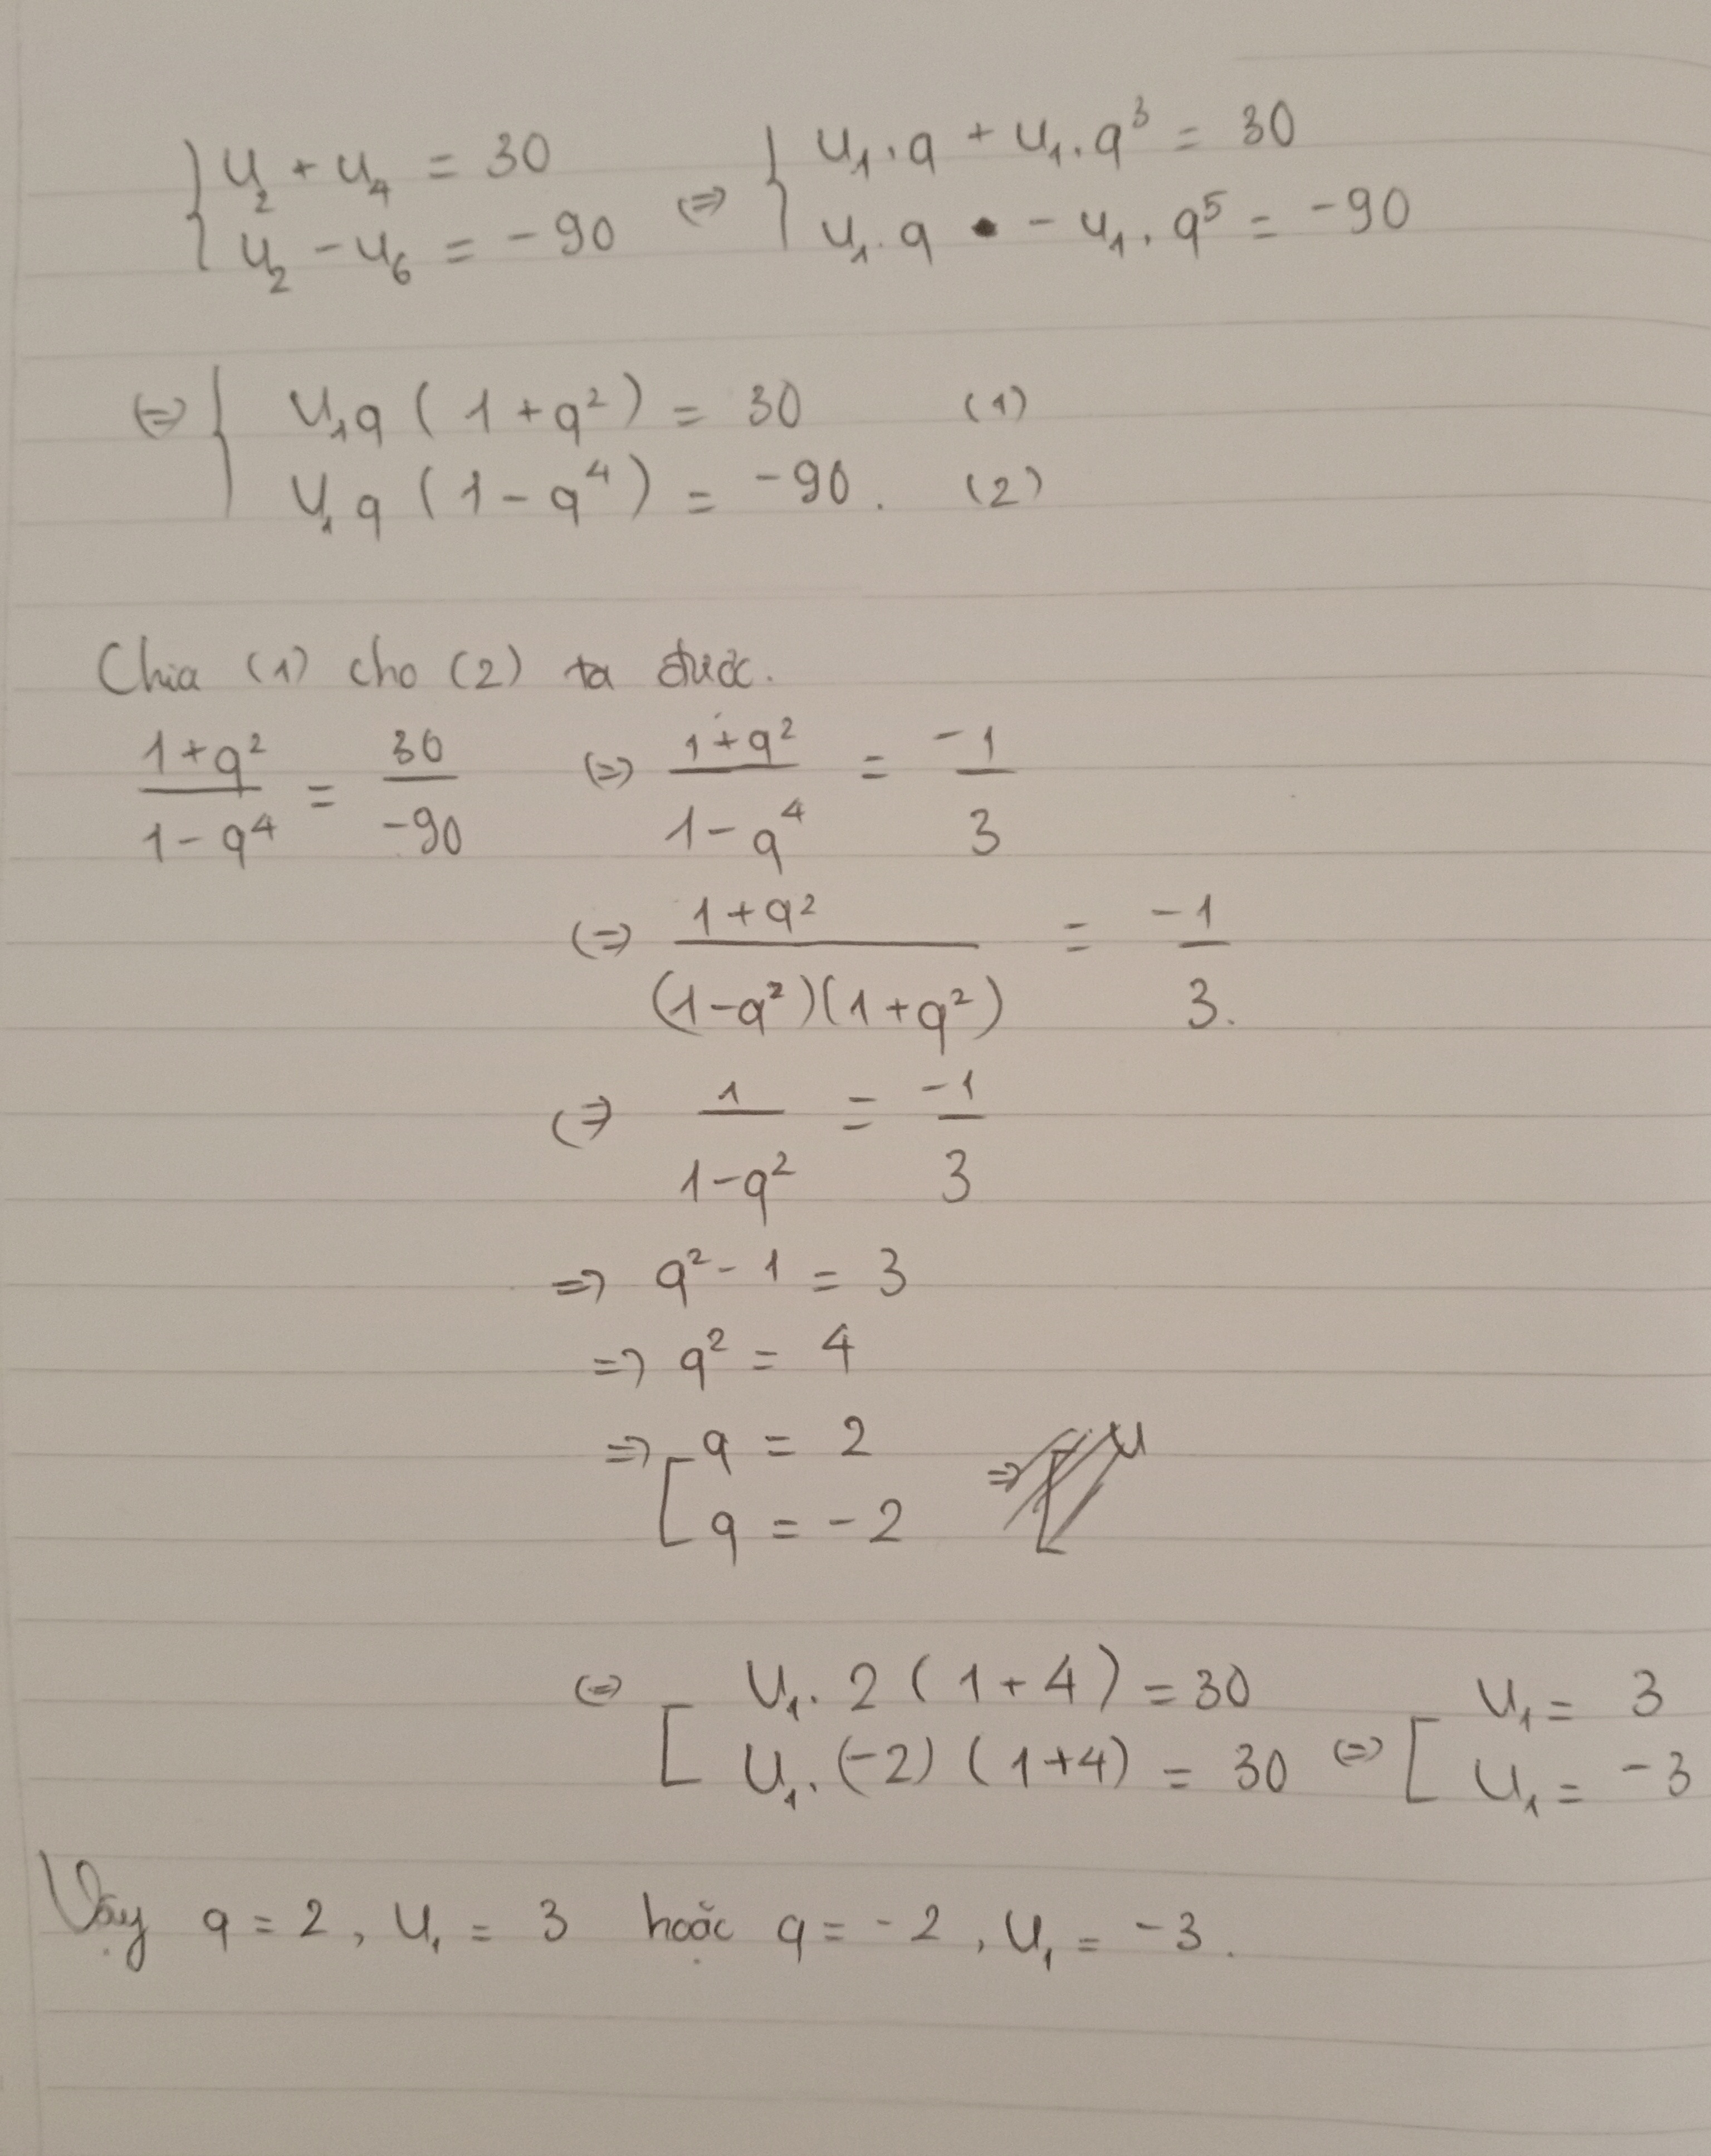 { u₂ + u₄ = 30 ⇔ { u₁.q + u₁.q³ = 30
u₂ - u₆ = -90 u₁.q • - u₁.q⁵ = -90
⇔ { u₁q (1 + q²) = 30 (1)
u₁q (1 - q⁴) = -90. (2)
Chia (1) cho (2) ta được.
(1+q²)/(1-q⁴) = 30/-90 ⇔ (1+q²)/(1-q⁴) = -1/3
⇔ (1+q²)/((1-q²)(1+q²)) = -1/3.
⇔ 1/(1-q²) = -1/3
⇒ q² - 1 = 3
⇒ q² = 4
⇒ [ q = 2
q = -2
⇔ [ u₁. 2 (1+4) = 30 ⇔ [ u₁ = 3
u₁. (-2) (1+4) = 30 u₁ = -3
Vậy q = 2, u₁ = 3 hoặc q = -2, u₁ = -3.